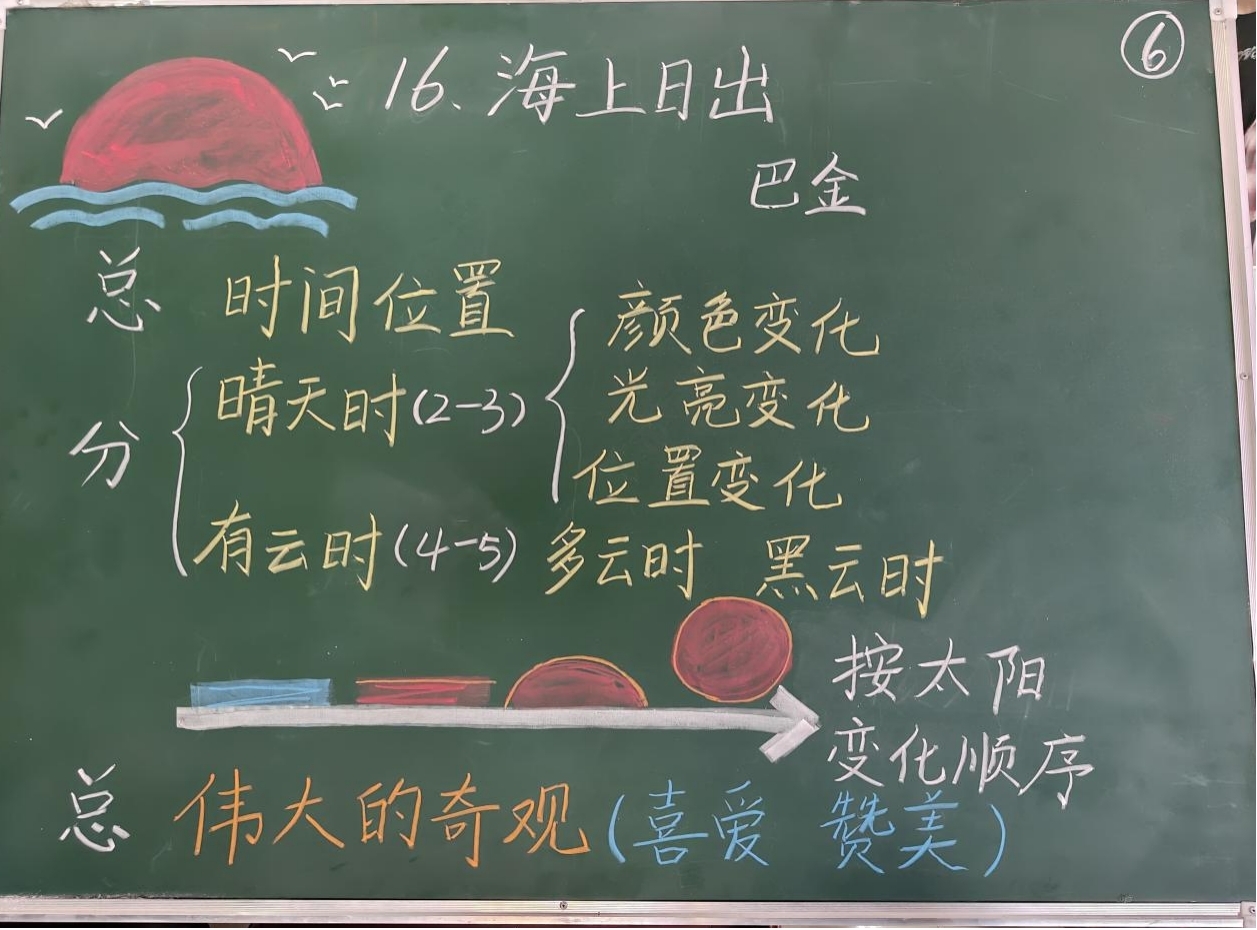 ⑥
16、海上日出
巴金
总 时间位置
颜色变化
分 晴天时(2-3) 光亮变化
位置变化
有云时(4-5) 多云时 黑云时
按太阳
变化顺序
总 伟大的奇观(喜爱 赞美)